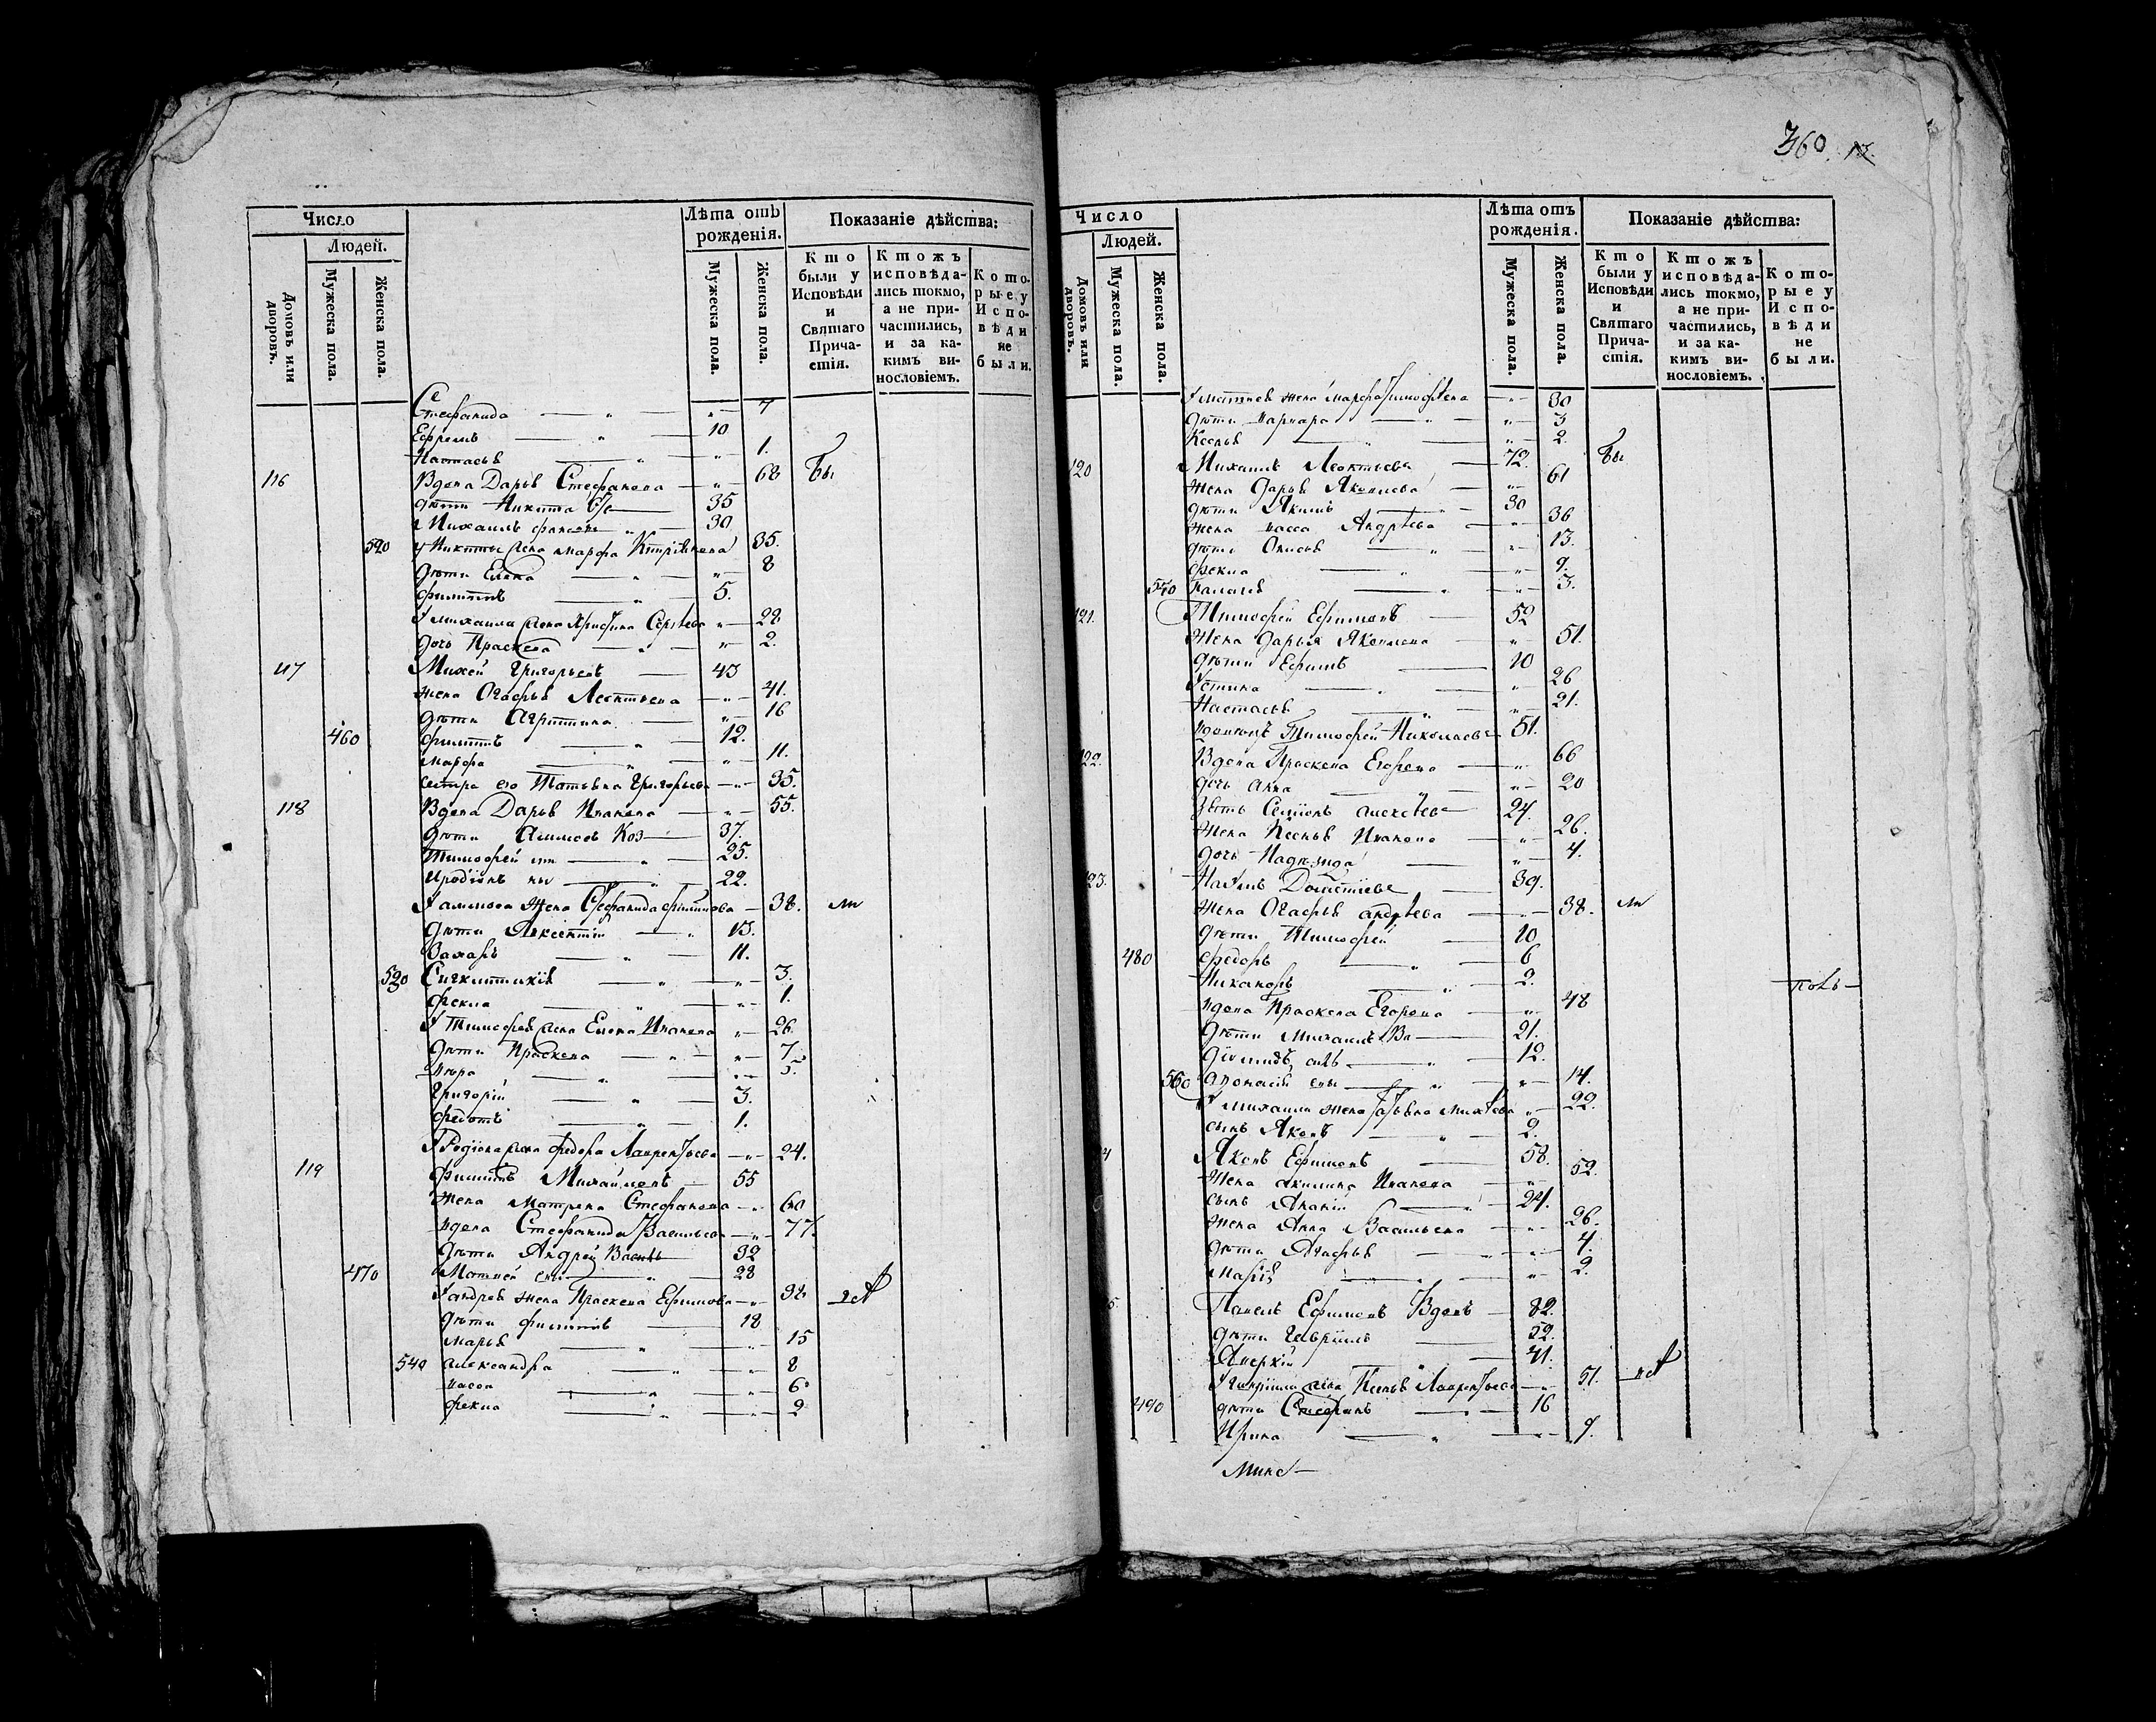 360. 13.
Число
Людей.
Домовъ или дворовъ.
Мужеска пола.
Женска пола.
Лѣта отъ рожденія.
Мужеска пола.
Женска пола.
Показаніе дѣйства:
Кто были у Исповѣди и Святаго Прича-стія.
Ктожъ исповѣда-лись токмо, а не при-частились, и за ка-кимъ ви-нословіемъ.
Кото-рые у Испо-вѣди не были.
Стефанида 7
Ефремъ 10
Настасья 1.
116 Вдова Дарья Стефанова 68 бы
дѣти Никита 35
Михаилъ 30
520 У Никиты жена Марфа 35.
дѣти Елена 8
Филиппъ 5.
У Михаила жена Сергѣева 22
дочь Праскева 2.
117 Михей Григорьевъ 43
жена Огафья Леонтьева 41.
дѣти Агриппина 16
460 Филиппъ 12.
Марфа 11.
сестра его Татьяна Григорьева 35.
118 Вдова Дарья Иванова 55.
дѣти 37.
Тимофей 25.
22.
жена Стефанида 38. ли
дѣти Авксентій 13.
Захаръ 11.
530 3.
Фекла 1.
У Тимофея жена Елена Иванова 26.
дѣти Праскева 7
5.
Григорій 3.
Федотъ 1.
У Родіона жена Федора Лаврентьева 24.
119 Филиппъ Михайловъ 55
жена Матрена Стефанова 60
вдова Стефанида Васильева 77.
дѣти Андрей 32
470 Матвей 28
У Андрея жена Праскева Ефимова 32
дѣти Филиппъ 18
Марья 15
540 Александра 8
Васса 6
Фекла 2
Число
Людей.
Домовъ или дворовъ.
Мужеска пола.
Женска пола.
Лѣта отъ рожденія.
Мужеска пола.
Женска пола.
Показаніе дѣйства:
Кто были у Исповѣди и Святаго Прича-стія.
Ктожъ исповѣда-лись токмо, а не при-частились, и за ка-кимъ ви-нословіемъ.
Кото-рые у Испо-вѣди не были.
У Матвея жена Марфа Тимофѣева 30
дѣти Варвара 3
Ксенья 2.
120 Михаилъ Леонтьевъ 72. бы
жена Дарья Яковлева 61
дѣти Якимъ 30
жена Васса Андрѣева 36
дѣти 13.
Фекла 9.
550 Палагея 3.
121. Тимофей Ефимовъ 52
жена Дарья Яковлева 51.
дѣти Ефимъ 10
Устина 26
Настасья 21.
вдовецъ Тимофей Николаевъ 51.
122. Вдова Праскева Егорева 66
дочь Анна 20
зять Семіонъ Алексѣевъ 24.
жена Ксенья Иванова 26.
дочь Надежда 4.
123. Наумъ 39.
жена Огафья Андрѣева 38. ли
дѣти Тимофей 10
480 Федоръ 6
Никаноръ 2.
вдова Праскева Егорова 48
дѣти Михаилъ 21.
12.
560 14.
У Михаила жена 22.
сынъ Яковъ 2.
4 Яковъ Ефимовъ 58.
жена Акилина Иванова 52.
сынъ Ананій 24.
жена Анна Васильева 26.
дѣти Агафья 4.
Марія 2.
5. Павелъ Ефимовъ Вдовъ 82.
дѣти Гавріилъ 52.
Аверкій 41.
У Гавріила жена Ксенья Лаврентьева 51.
490 дѣти Стефанъ 16
Ирина 9.